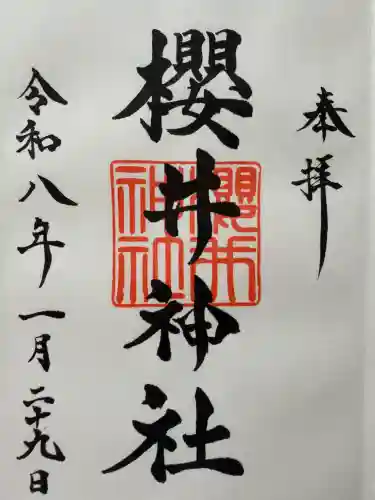 奉拝
櫻井神社
櫻井神社
令和八年一月二十九日